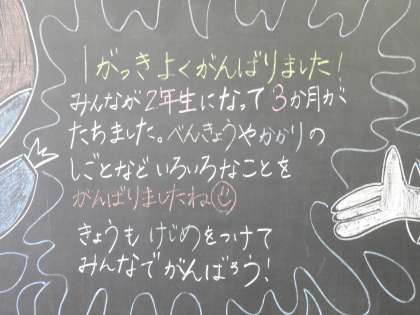 1がっきよくがんばりました!
みんなが2年生になって3か月が
たちました。べんきょうやかかりの
しごとなどいろいろなことを
がんばりましたね
きょうもけじめをつけて
みんなでがんばろう!